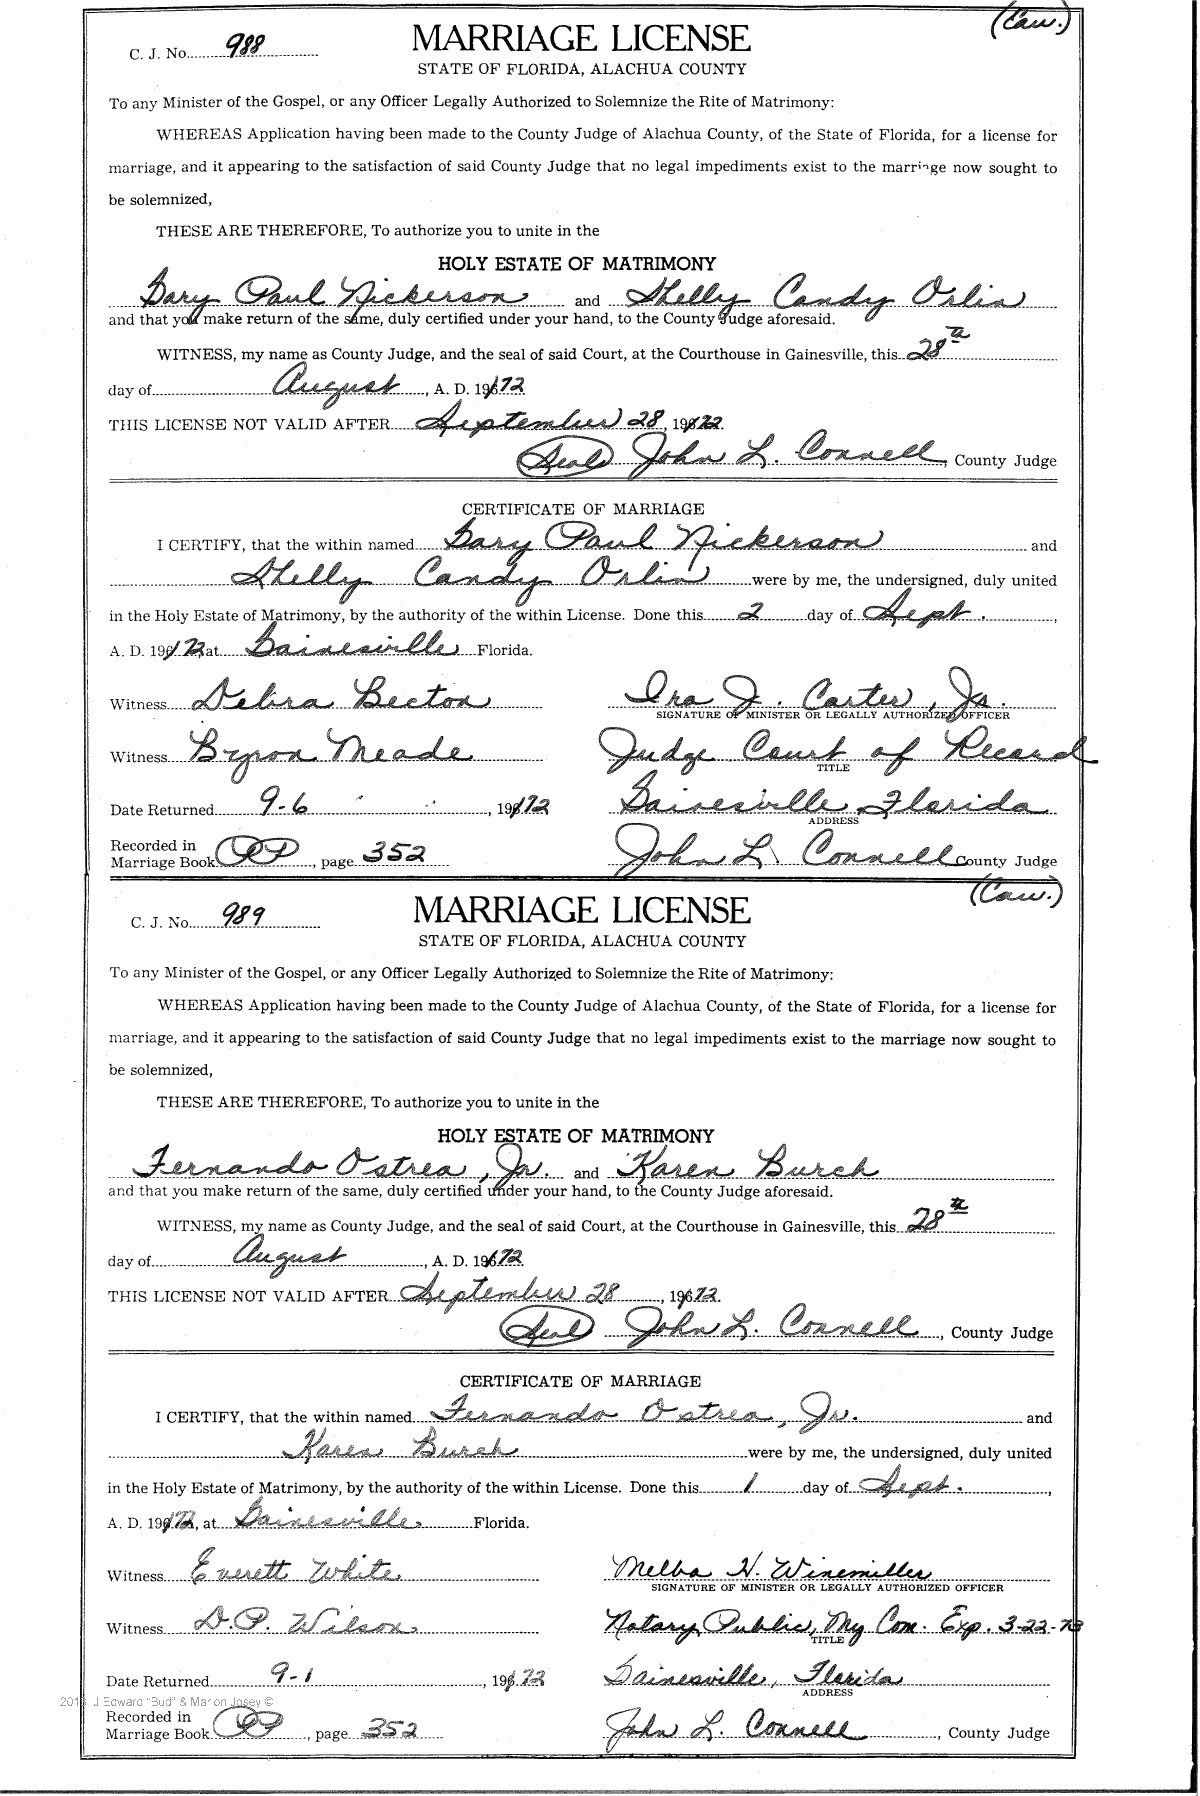 (Cau.)
C. J. No. 988
MARRIAGE LICENSE
STATE OF FLORIDA, ALACHUA COUNTY
To any Minister of the Gospel, or any Officer Legally Authorized to Solemnize the Rite of Matrimony:
WHEREAS Application having been made to the County Judge of Alachua County, of the State of Florida, for a license for
marriage, and it appearing to the satisfaction of said County Judge that no legal impediments exist to the marriage now sought to
be solemnized,
THESE ARE THEREFORE, To authorize you to unite in the
HOLY ESTATE OF MATRIMONY
Gary Paul Nickerson and Shelly Candy Orlin
and that you make return of the same, duly certified under your hand, to the County Judge aforesaid.
WITNESS, my name as County Judge, and the seal of said Court, at the Courthouse in Gainesville, this 28th
day of August, A. D. 1972
THIS LICENSE NOT VALID AFTER September 28, 1972
(Seal) John L. Connell, County Judge
CERTIFICATE OF MARRIAGE
I CERTIFY, that the within named Gary Paul Nickerson and
Shelly Candy Orlin were by me, the undersigned, duly united
in the Holy Estate of Matrimony, by the authority of the within License. Done this 2 day of Sept.,
A. D. 1972, at Gainesville Florida.
Witness Debra Becton Ira J. Carter, Jr.
SIGNATURE OF MINISTER OR LEGALLY AUTHORIZED OFFICER
Witness Byron Meade Judge Court of Record
TITLE
Date Returned 9-6, 1972 Gainesville, Florida
ADDRESS
Recorded in
Marriage Book PP, page 352 John L. Connell County Judge
(Cau.)
C. J. No. 989
MARRIAGE LICENSE
STATE OF FLORIDA, ALACHUA COUNTY
To any Minister of the Gospel, or any Officer Legally Authorized to Solemnize the Rite of Matrimony:
WHEREAS Application having been made to the County Judge of Alachua County, of the State of Florida, for a license for
marriage, and it appearing to the satisfaction of said County Judge that no legal impediments exist to the marriage now sought to
be solemnized,
THESE ARE THEREFORE, To authorize you to unite in the
HOLY ESTATE OF MATRIMONY
Fernando Ostrea, Jr. and Karen Burch
and that you make return of the same, duly certified under your hand, to the County Judge aforesaid.
WITNESS, my name as County Judge, and the seal of said Court, at the Courthouse in Gainesville, this 28th
day of August, A. D. 1972
THIS LICENSE NOT VALID AFTER September 28, 1972.
(Seal) John L. Connell, County Judge
CERTIFICATE OF MARRIAGE
I CERTIFY, that the within named Fernando Ostrea, Jr. and
Karen Burch were by me, the undersigned, duly united
in the Holy Estate of Matrimony, by the authority of the within License. Done this 1 day of Sept.,
A. D. 1972, at Gainesville Florida.
Witness Everett White Melba H. Winemiller
SIGNATURE OF MINISTER OR LEGALLY AUTHORIZED OFFICER
Witness D.P. Wilson Notary Public, My Com. Exp. 3-22-73
TITLE
Date Returned 9-1, 1972 Gainesville, Florida
ADDRESS
J Edward "Bud" & Marion Josey ©
Recorded in
Marriage Book PP, page 352 John L. Connell, County Judge